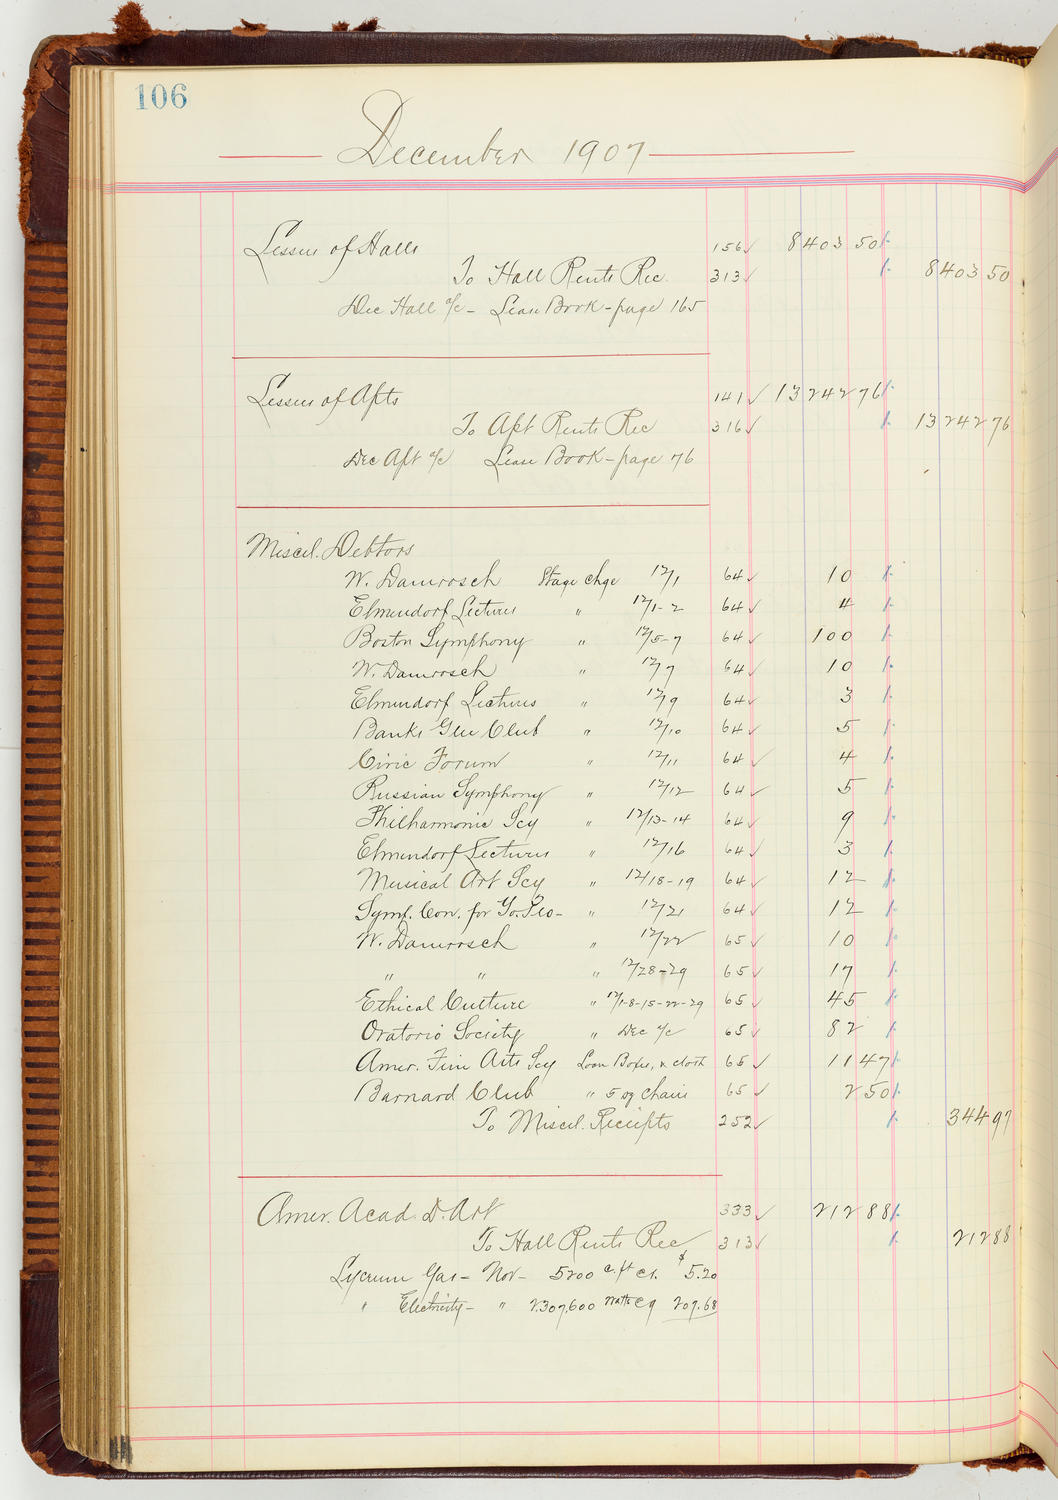 106
December 1907
Lessees of Halls 156 8403 50
To Hall Rents Rec. 313 8403 50
Dec Hall a/c - Lease Book - page 165
Lessees of Apts 141 13242 76
To Apt Rents Rec 316 13242 76
Dec Apt a/c Lease Book - page 76
Miscel. Debtors
W. Damrosch Stage Chge 12/1 64 10
Elmendorf Lectures " 12/1-2 64 4
Boston Symphony " 12/5-7 64 100
W. Damrosch " 12/7 64 10
Elmendorf Lectures " 12/9 64 3
Banks Glee Club " 12/10 64 5
Civic Forum " 12/11 64 4
Russian Symphony " 12/12 64 5
Philharmonic Scy " 12/13-14 64 9
Elmendorf Lectures " 12/16 64 3
Musical Art Scy " 12/18-19 64 12
Symf. Con. for Yo. Peo- " 12/21 64 12
W. Damrosch " 12/22 65 10
" " " 12/28-29 65 17
Ethical Culture " 12/1-8-15-22-29 65 45
Oratorio Society " Dec a/c 65 82
Amer. Fine Arts Scy Loan Boxes, & cloth 65 11 47
Barnard Club " 50 chairs 65 2 50
To Miscel. Receipts 252 344 97
Amer. Acad. D. Art 333 212 88
To Hall Rents Rec 313 212 88
Lyceum Gas - Nov - 5200 c.ft @1. $5.20
" Electricity - " 2.307,600 watts @9 207.68